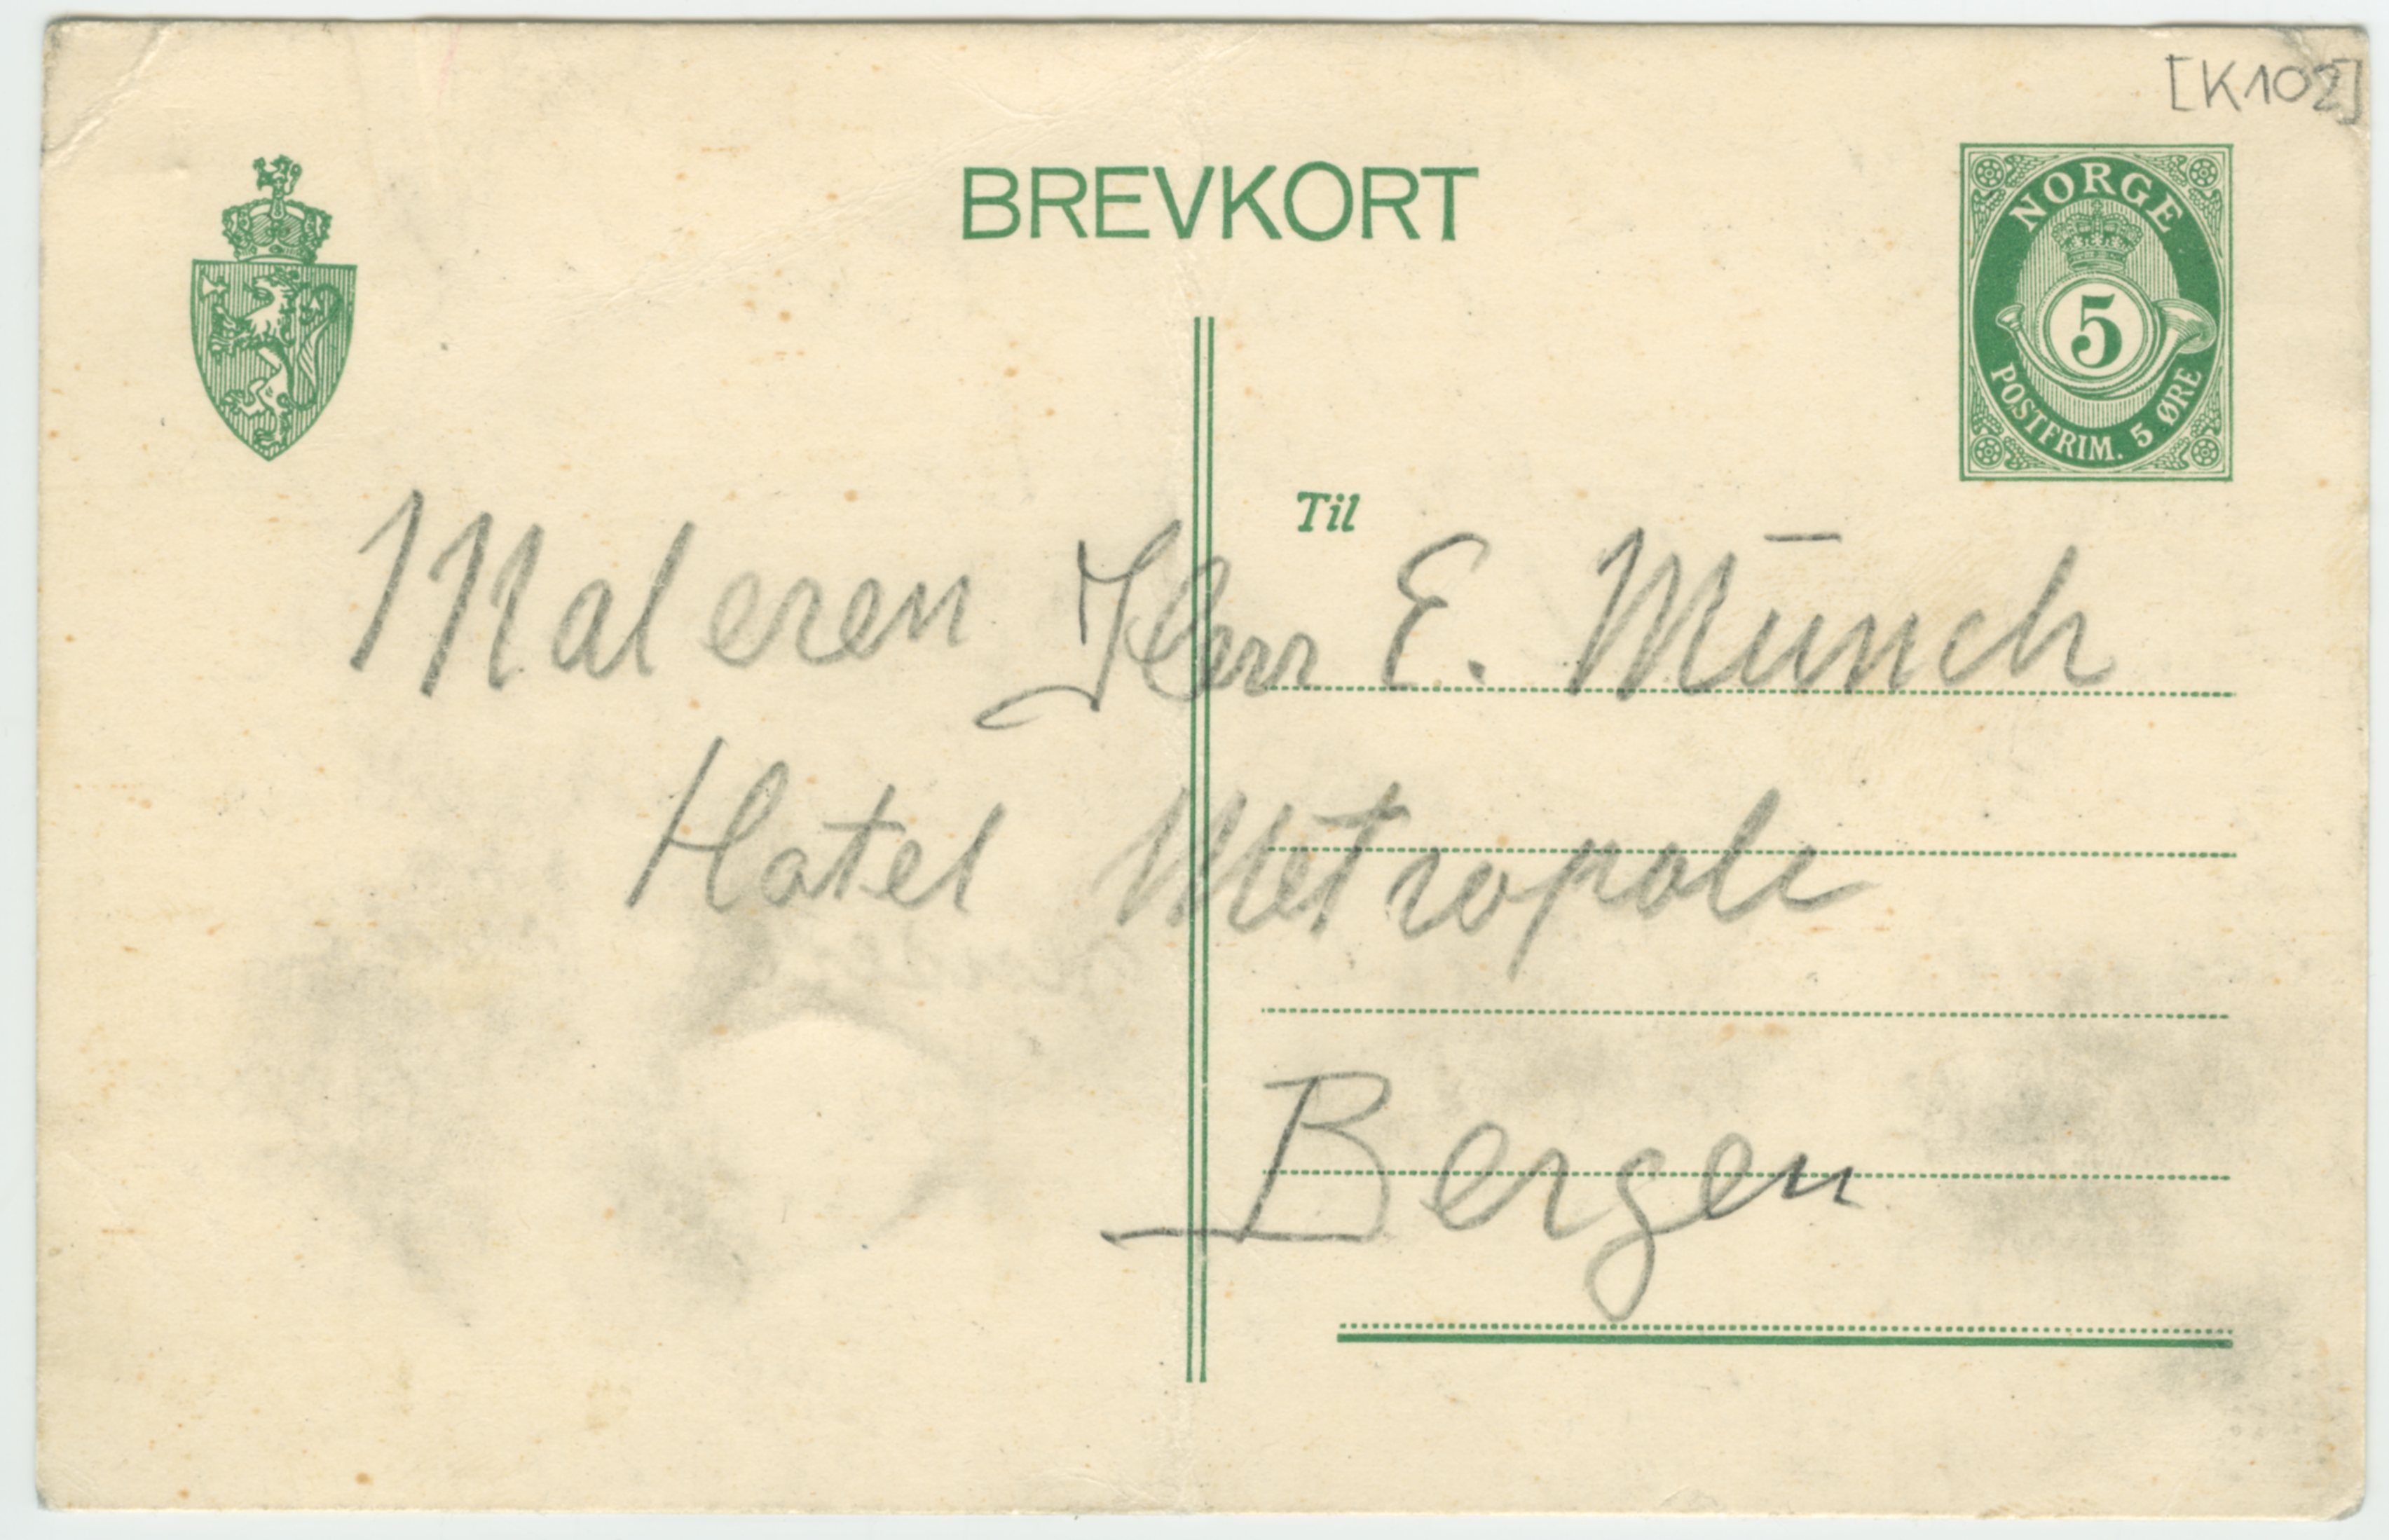 [K102]
BREVKORT
NORGE
5
POSTFRIM. 5 ØRE
Til
Maleren Herr E. Munch
Hotel Metropole
Bergen